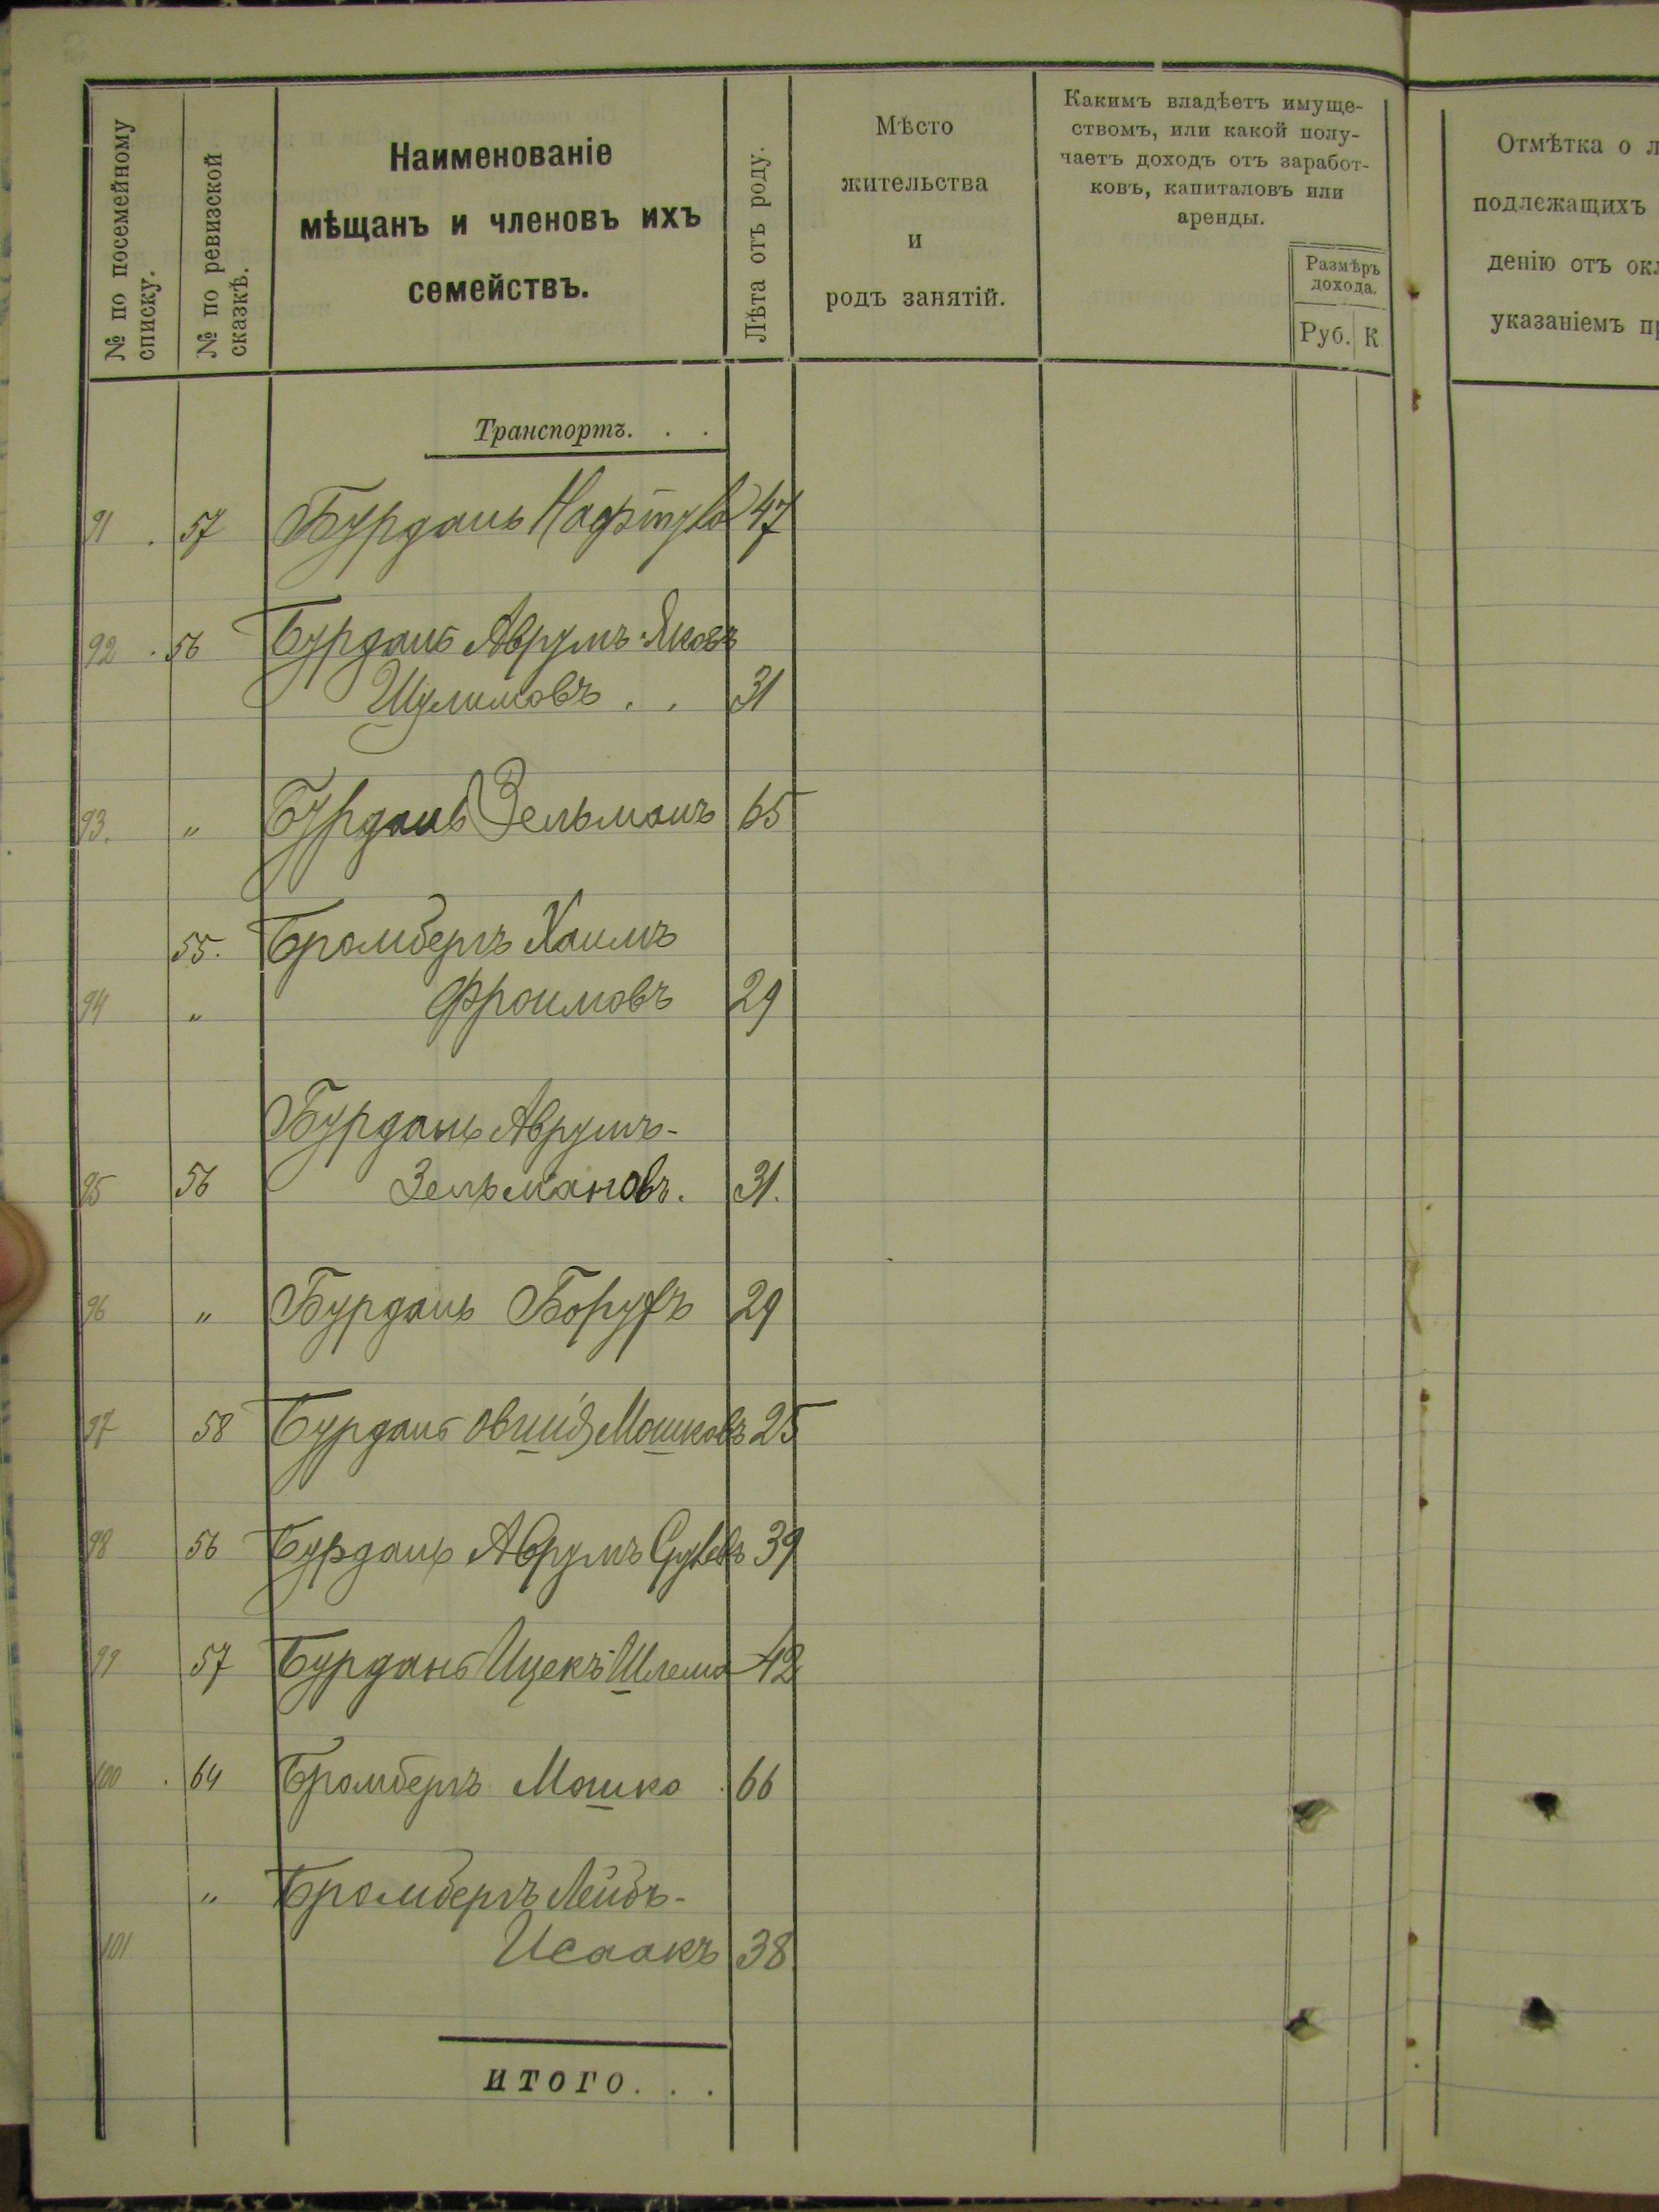 № по посемейному
списку.
№ по ревизской
сказкѣ.
Наименованіе
мѣщанъ и членовъ ихъ
семействъ.
Лѣта отъ роду.
Мѣсто
жительства
и
родъ занятій.
Какимъ владѣетъ имуще-
ствомъ, или какой полу-
чаетъ доходъ отъ заработ-
ковъ, капиталовъ или
аренды.
Размѣръ
дохода.
Руб. К
Отмѣтка о л
подлежащихъ
денію отъ окл
указаніемъ пр
Транспортъ. . .
91 . 57 Бурдань Нафтула 47
92 . 56 Бурдань Аврумъ-Яковъ
Шулимовъ . . 31
93. " Бурдань Зельманъ 65
55. Бромбергъ Хаимъ
94 " Фроимовъ 29
Бурдань Аврумъ-
95 56 Зельмановъ. 31.
96 " Бурдань Борухъ 29
97 58 Бурдань Овшія Мошковъ 25
98 56 Бурдань Аврумъ 39
99 57 Бурдань Ицекъ-Шлема 42
100 . 64 Бромбергъ Мошко . 66
" Бромбергъ Лейбъ-
101 Исаакъ 38
итого. . .